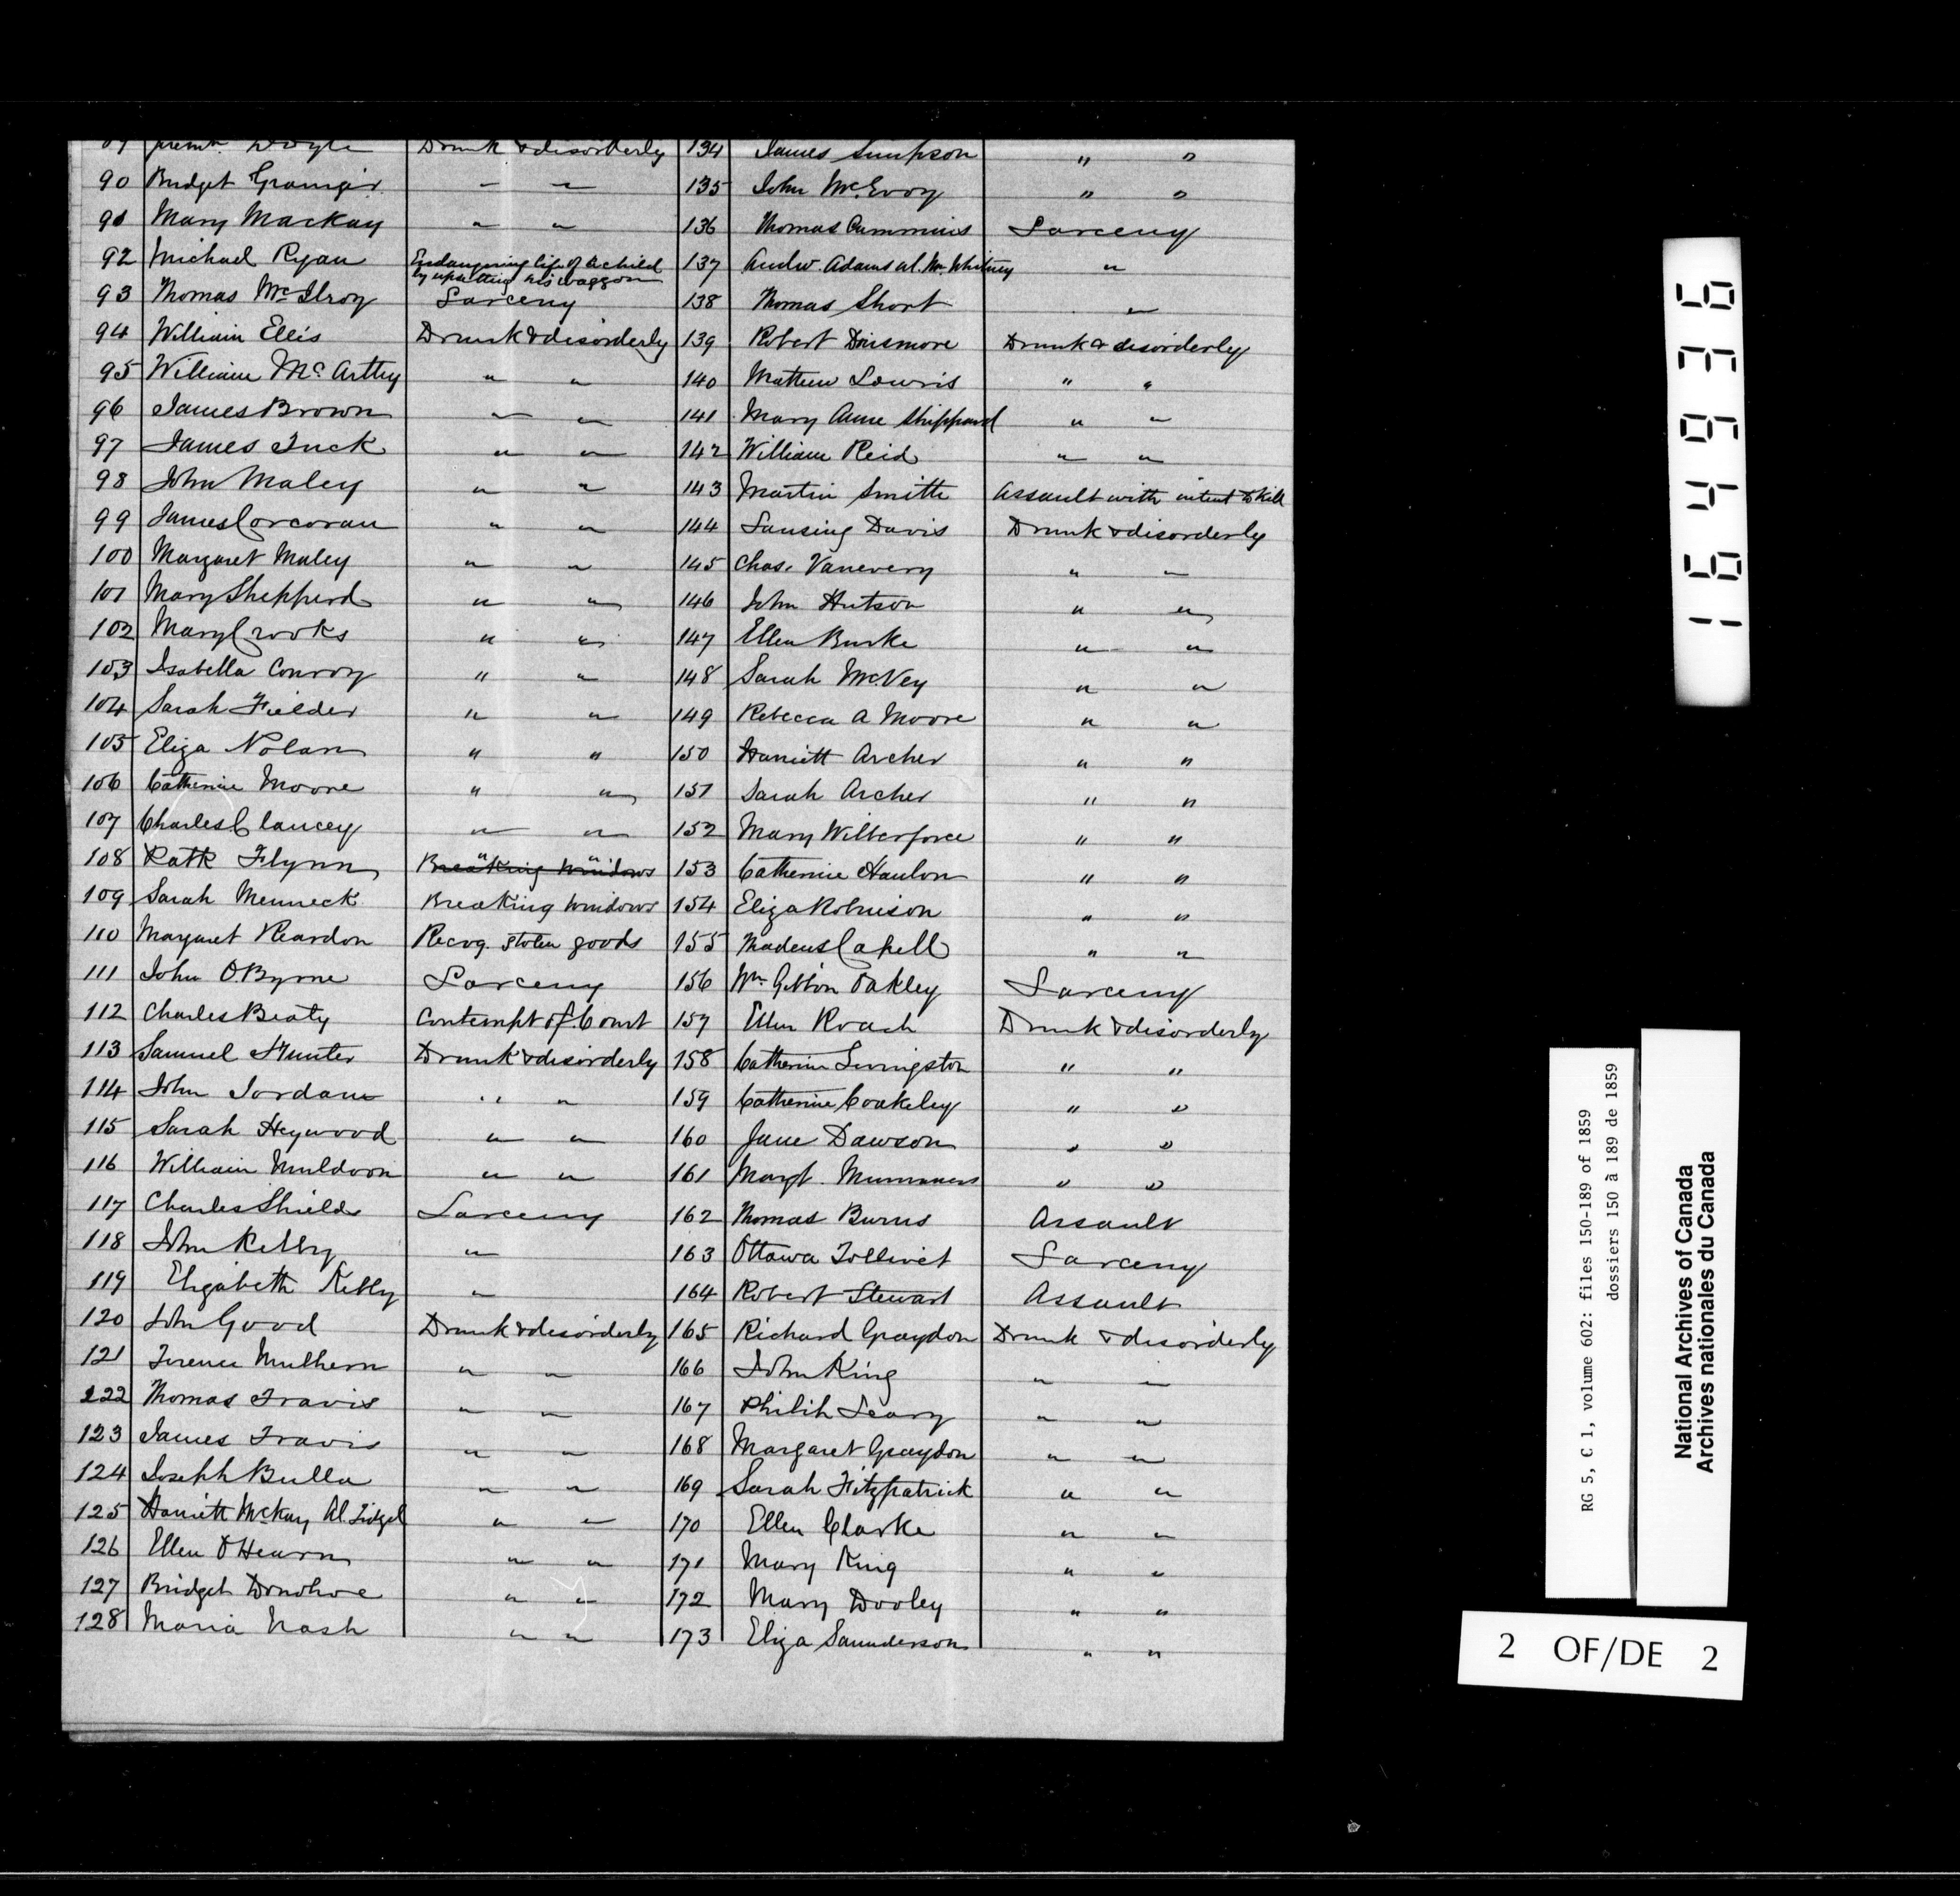 89 Doyle Drunk & disorderly 134 James Simpson " "
90 Bridget Grainger " " 135 John McEvoy " "
91 Mary Mackay " " 136 Thomas Cummins Larceny
92 Michael Ryan Endangering life of a child by upsetting his waggon 137 Andw. Adams al. Wm. Whitney "
93 Thomas McIlroy Larceny 138 Thomas Short "
94 William Ellis Drunk & disorderly 139 Robert Dinsmore Drunk & disorderly
95 William McArthy " " 140 Mathew Lowris " "
96 James Brown " " 141 Mary Anne Shippard " "
97 James Tuck " " 142 William Reid " "
98 John Maley " " 143 Martin Smith Assault with intent to kill
99 James Corcoran " " 144 Lansing Davis Drunk & disorderly
100 Margaret Maley " " 145 Chas. Vanevery " "
101 Mary Shepperd " " 146 John Hutson " "
102 Mary Crooks " " 147 Ellen Burke " "
103 Isabella Conroy " " 148 Sarah McVey " "
104 Sarah Fielder " " 149 Rebecca A Moore " "
105 Eliza Nolan " " 150 Harriett Archer " "
106 Catherine Moore " " 151 Sarah Archer " "
107 Charles Clancey " " 152 Mary Wilberforce " "
108 Patk Flynn " " Breaking windows 153 Catherine Hanlon " "
109 Sarah Menneck Breaking windows 154 Eliza Robinson " "
110 Margaret Reardon Recvg. stolen goods 155 Cahell " "
111 John O.Byrne Larceny 156 Wm. Gibbon Oakley Larceny
112 Charles Beaty Contempt of Court 157 Ellen Roach Drunk & disorderly
113 Samuel Hunter Drunk & disorderly 158 Catherine Livingston " "
114 John Jordan " " 159 Catherine Coakeley " "
115 Sarah Heywood " " 160 Jane Dawson " "
116 William Muldoon " " 161 Margt. " "
117 Charles Shields Larceny 162 Thomas Burns Assault
118 John Kelly " 163 Ottawa Tollivet Larceny
119 Elizabeth Kelly " 164 Robert Stewart Assault
120 John Good Drunk & disorderly 165 Richard Graydon Drunk & disorderly
121 Terence Mulhern " " 166 John King " "
122 Thomas Travis " " 167 Philip Leary " "
123 James Travis " " 168 Margaret Graydon " "
124 Joseph Bulla " " 169 Sarah Fitzpatrick " "
125 Harriett McKay Al. " " 170 Ellen Clarke " "
126 Ellen O'Hearn " " 171 Mary King " "
127 Bridget Donohoe " " 172 Mary Dooley " "
128 Maria Nash " " 173 Eliza Saunderson " "
164936
RG 5, C 1, volume 602: files 150-189 of 1859
dossiers 150 à 189 de 1859
National Archives of Canada
Archives nationales du Canada
2 OF/DE 2